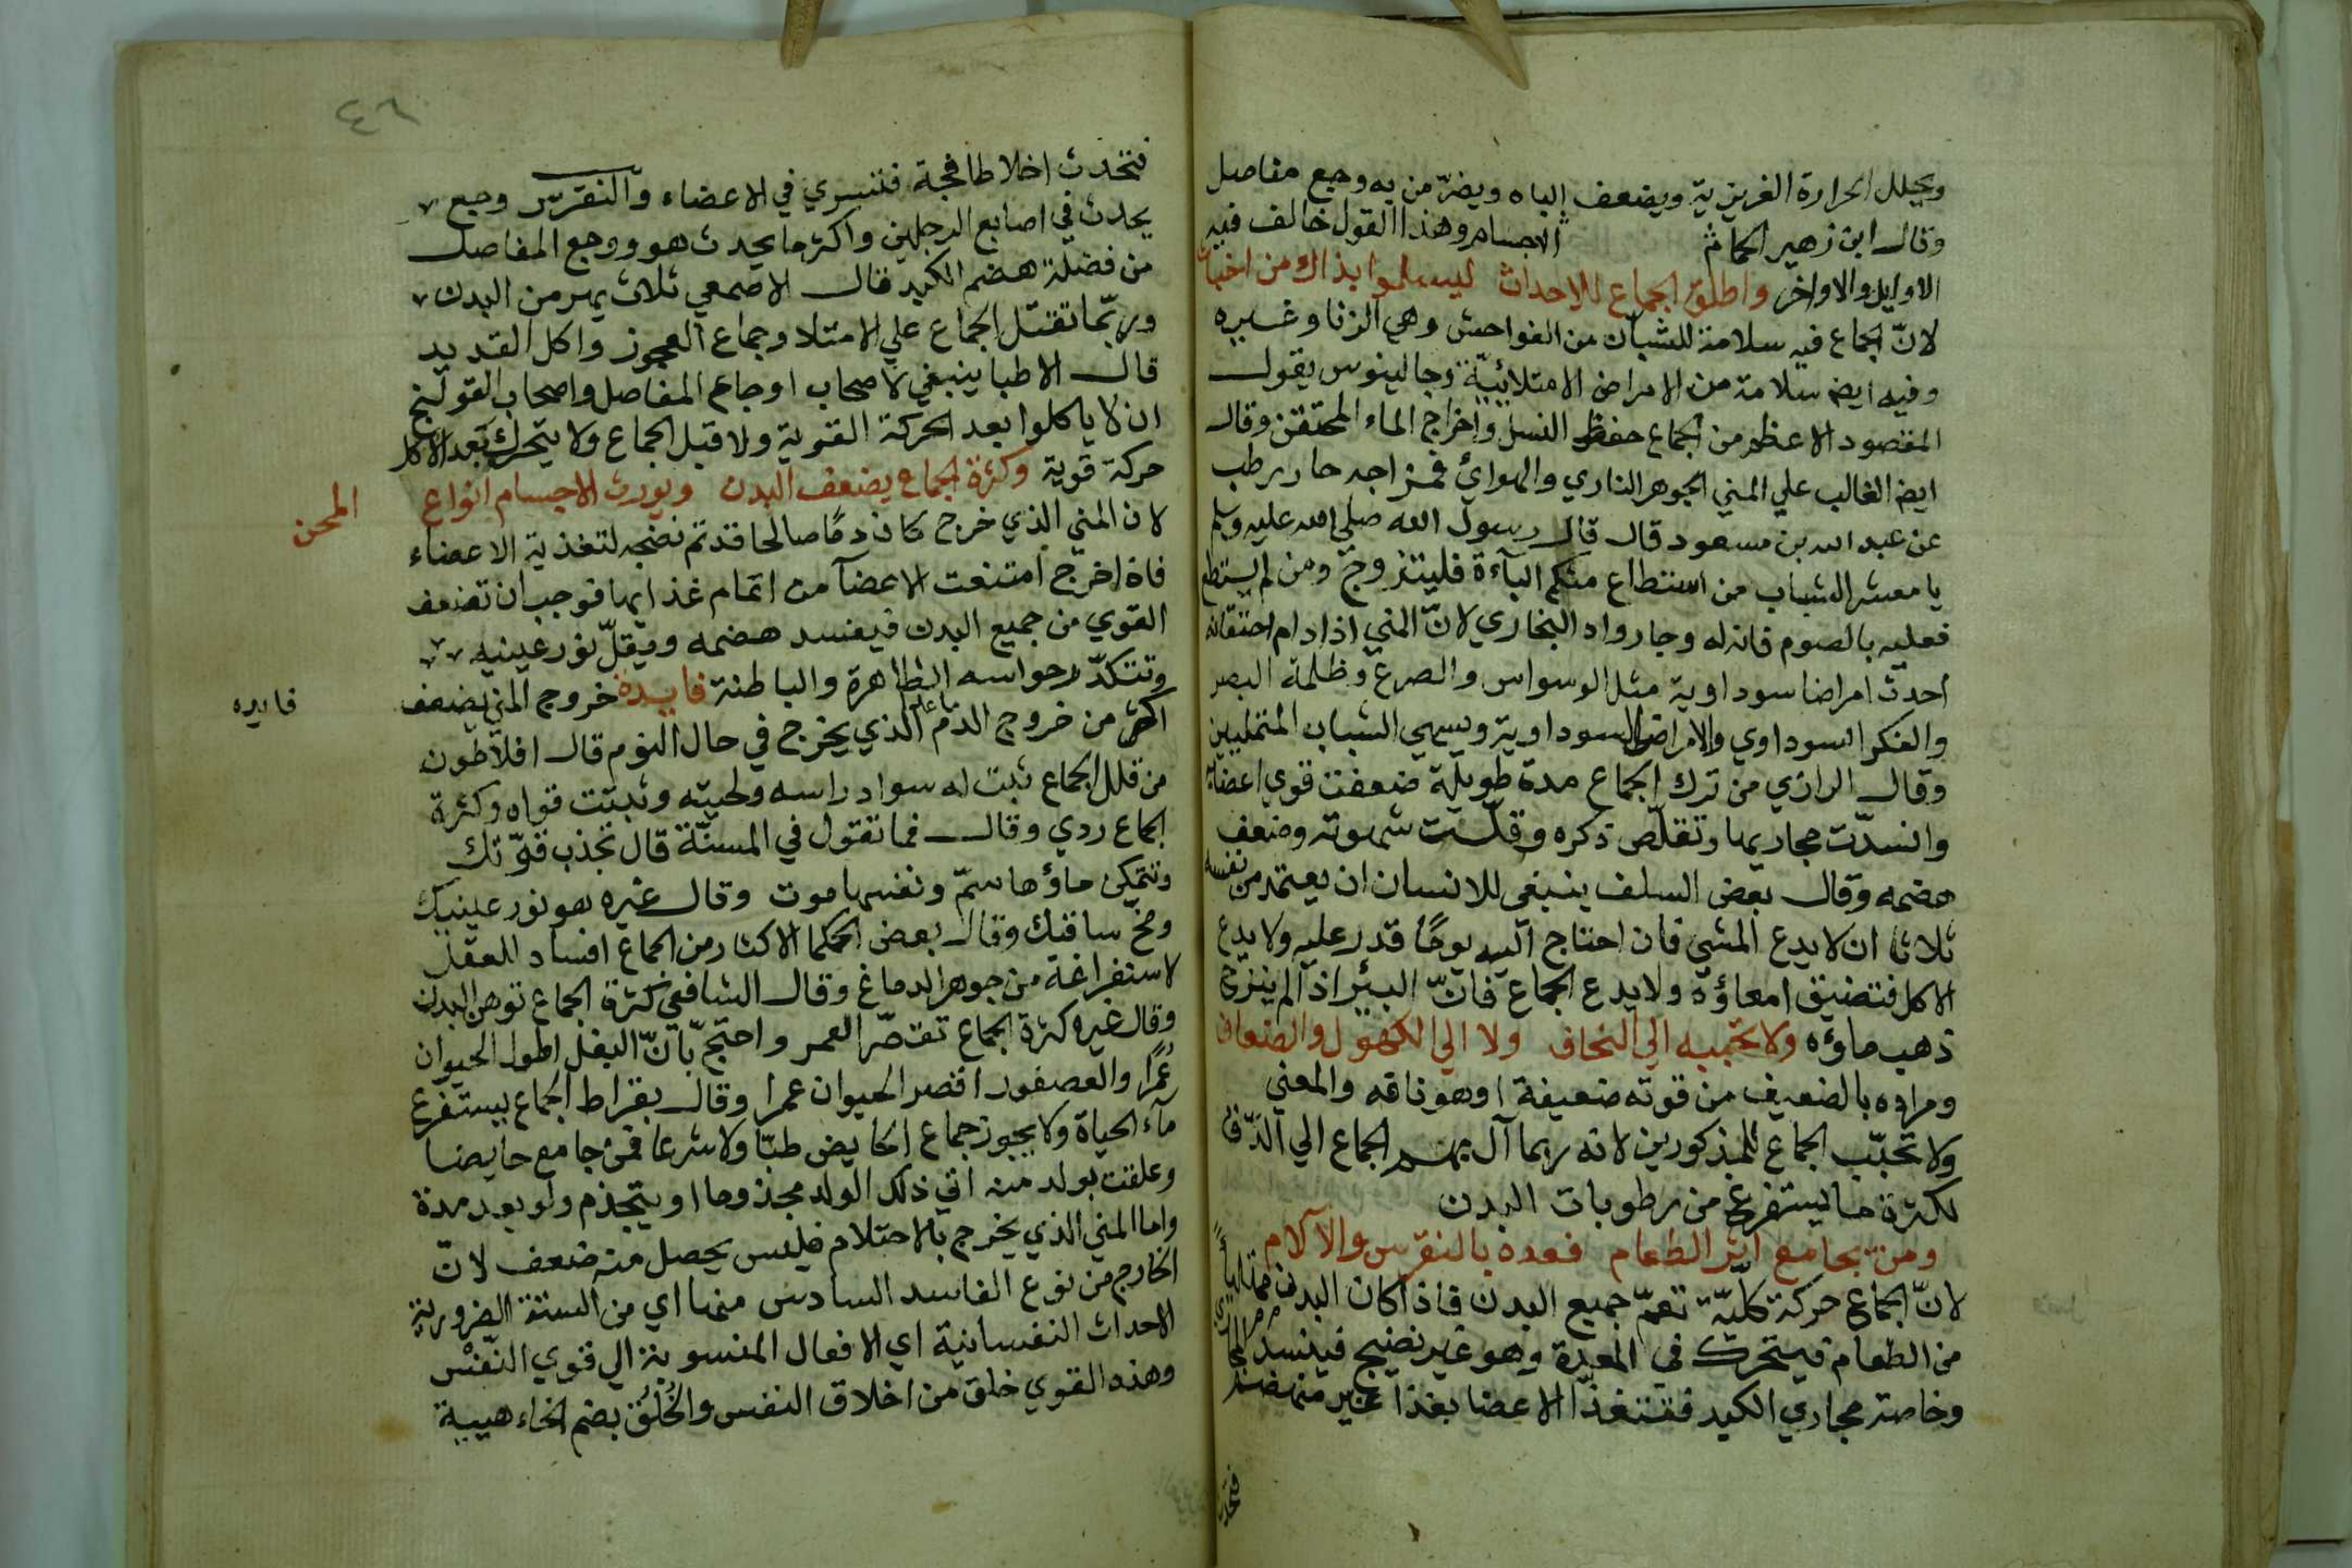 ويحلل الحرارة الغريزية ويضعف الباه ويضرّ من به وجع مفاصل
وقال ابن زهير الحمام الاجسام وهذا القول خالف فيه
الاوايل والاواخر واطلق الجماع للاحداث ليسلموا بذاك من اخباث
لانّ الجماع فيه سلامة للشبان من الفواحش وهي الزنا وغيره
وفيه ايض سلامة من الامراض الامتلائيّة وجالينوس يقول
المقصود الاعظم من الجماع حفظ النسل واخراج الماء المحتقن وقال
ايض الغالب علي المني الجوهر الناري والهوائ فمزاجه حار رطب
عن عبد الله بن مسعود قال قال رسول الله صلي الله عليه وسلم
يا معشر الشباب من استطاع منكم البآءة فليتزوج ومن لم يستطع
فعليه بالصوم فانه له وجا رواه البخاري لانّ المني اذا دام احتقانه
احدث امراضا سوداوية مثل الوسواس والصرع وظلمة البصر
والفكر السوداوي والامراض السوداوية ويسمي الشباب المتخليين
وقال الرازي من ترك الجماع مدة طويلة ضعفت قوي اعضائه
وانسدّت مجاريها وتقلّص ذكره وقلّت شهوته وضعف
هضمه وقال بعض السلف ينبغي للانسان ان يعتمد من نفسه
ثلاثا ان لا يدع المشي فان احتاج اليه يومًا قدر عليه ولا يدع
الاكل فتضيق امعاؤه ولا يدع الجماع فانّ البئر اذا لم ينزح
ذهب ماؤه ولا تحببه الي النحاف ولا الي الكهول والضعاف
ومراده بالضعيف من قوته ضعيفة او هو ناقه والمعني
ولا تحبّب الجماع للمذكورين لانه ربما آل بهم الجماع الي الدّق
لكثرة ما يستفرغ من رطوبات البدن
ومن يجامع اثر الطعام فعده بالنقرس والآلام
لانّ الجماع حركة كليّة تعمّ جميع البدن فاذا كان البدن ممتليا
من الطعام فيتحرك في المعدة وهو غير نضيج فيفسد المجاري
وخاصة مجاري الكبد فتتغذا الاعضا بغذا غير منهضم
فتحدث
٤٦
فتحدث اخلاطا فجة فتسري في الاعضاء والنقرس وجع
يحدث في اصابع الرجلين واكثر ما يحدث هو ووجع المفاصل
من فضلة هضم الكبد قال الاصمعي ثلاث يهرمن البدن
وربّما تقتل الجماع علي الامتلا وجماع العجوز واكل القديد
قال الاطبا ينبغي لاصحاب اوجاع المفاصل واصحاب القولنج
ان لا ياكلوا بعد الحركة القوية ولا قبل الجماع ولا يتحرك بعد الاكل
حركة قوية وكثرة الجماع يضعف البدن ويورث الاجسام انواع المحن
لان المني الذي خرج كان دمًا صالحا قد تم نضجه لتغذية الاعضاء
فاذا خرج امتنعت الاعضآ من اتمام غذايها فوجب ان تضعف
القوي من جميع البدن فيفسد هضمه ويقلّ نور عينيه
وتتكدّر حواسه الظاهرة والباطنة فايدة خروج المني يضعف
فايده
اكثر من خروج الدم الذي يخرج في حال النوم قال افلاطون
من قلل الجماع ثبت له سواد راسه ولحيته وثبتت قواه وكثرة
الجماع ردي وقال فما تقول في المسنّة قال تجذب قوّتك
ماؤها سمّ ونفسها موت وقال غيره هو نور عينيك
ومخ ساقيك وقال بعض الحكما الاكثار من الجماع افساد للعقل
لاستفراغه من جوهر الدماغ وقال الشافعي كثرة الجماع توهن البدن
وقال غيره كثرة الجماع تقصّر العمر واحتجّ بانّ البغل اطول الحيوان
عُمرًا والعصفور اقصر الحيوان عمرا وقال بقراط الجماع يستفرغ
مآء الحياة ولا يجوز جماع الحايض طبّا ولا شرعا فمن جامع حايضا
وعلقت بولد منه اتي ذلك الولد مجذوما او يتجذم ولو بعد مدة
واما المني الذي يخرج بالاحتلام فليس يحصل منه ضعف لانّ
الخارج من نوع الفاسد السادس منها اي من الستة الضرورية
الاحداث النفسانية اي الافعال المنسوبة الي قوي النّفْس
وهذه القوي خلق من اخلاق النفس والخُلُق بضم الخاء هيية